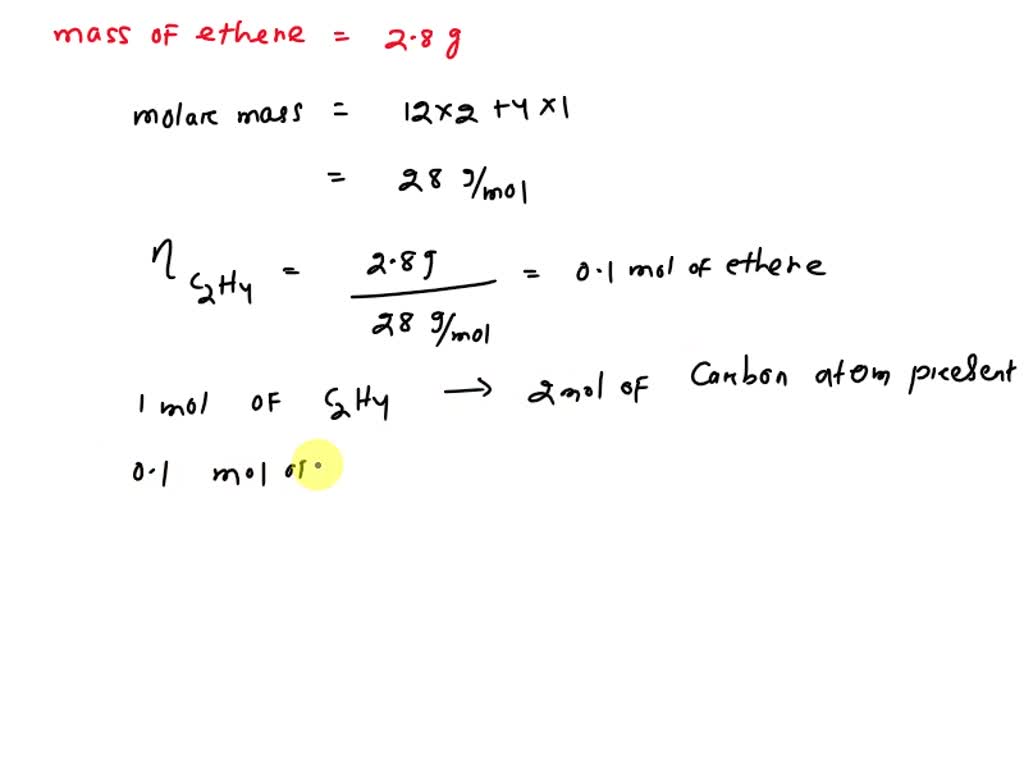 mass of ethene = 2.8 g
molar mass = 12×2 + 4×1
= 28 g/mol
n C₂H₄ = 2.8 g / 28 g/mol = 0.1 mol of ethene
1 mol of C₂H₄ → 2 mol of Carbon atom present
0.1 mol of